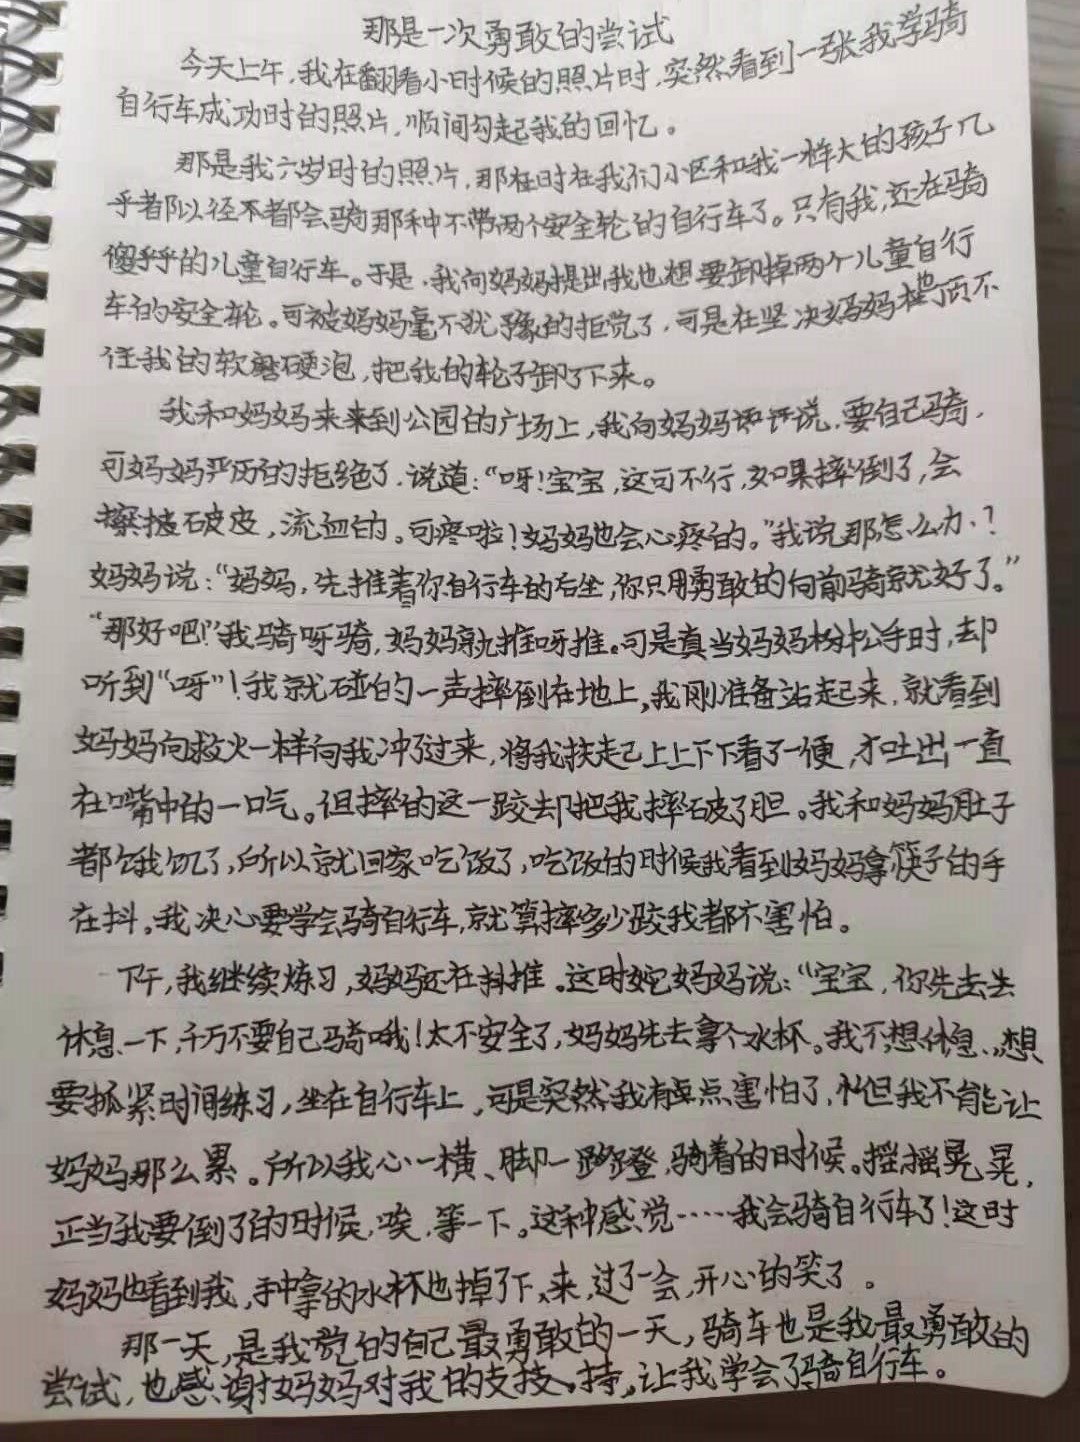 那是一次勇敢的尝试
今天上午,我在翻看小时候的照片时,突然看到一张我学骑
自行车成功时的照片,顺间勾起我的回忆。
那是我六岁时的照片,那在时在我们小区和我一样大的孩子几
乎都以径不都会骑那种不带两个安全轮的自行车了。只有我,还在骑
傻乎乎的儿童自行车。于是,我向妈妈提出我也想要卸掉两个儿童自行
车的安全轮。可被妈妈毫不犹豫的拒觉了,可是在坚决妈妈也顶不
住我的软磨硬泡,把我的轮子卸了下来。
我和妈妈来来到公园的广场上,我向妈妈说,要自己骑,
可妈妈严厉的拒绝了,说道:“呀!宝宝,这可不行,如果摔倒了,会
擦破皮,流血的。可疼啦!妈妈也会心疼的。”我说那怎么办?
妈妈说:“妈妈,先推着你自行车的后坐,你只用勇敢的向前骑就好了。”
“那好吧!”我骑呀骑,妈妈就推呀推。可是真当妈妈松手时,却
听到“呀”!我就碰的一声摔倒在地上,我刚准备站起来,就看到
妈妈向救火一样向我冲了过来,将我扶起上上下下看了一便,才吐出一直
在嘴中的一口气。但摔的这一跤却把我摔破了胆。我和妈妈肚子
都饿饥了,所以就回家吃饭了,吃饭的时候我看到妈妈拿筷子的手
在抖。我决心要学会骑自行车,就算摔多少跤我都不害怕。
下午,我继续炼习,妈妈还在抖推。这时妈妈说:“宝宝,你先去去
休息一下,千万不要自己骑哦!太不安全了,妈妈先去拿个水杯。我不想休息,想
要抓紧时间练习,坐在自行车上,可是突然我有点害怕了,但我不能让
妈妈那么累。所以我心一横、脚一蹬,骑着的时候。摇摇晃晃,
正当我要倒了的时候,唉,等一下。这种感觉……我会骑自行车了!这时
妈妈也看到我,手中拿的水杯也掉了下来,过了一会,开心的笑了。
那一天,是我觉的自己最勇敢的一天,骑车也是我最勇敢的
尝试,也感谢妈妈对我的支持,让我学会了骑自行车。